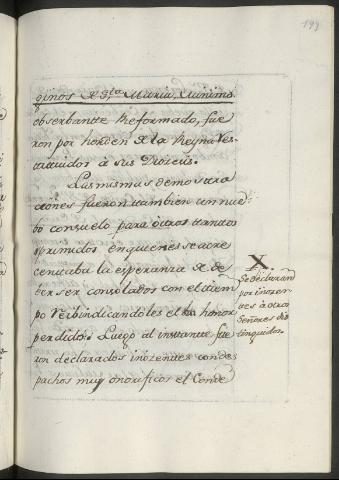 199
ginos de Sta. Maria, Minimo
observante Reformado, fue
ron por horden de la Reyna res-
tituidos à sus Diocesis.
Las mismas demostra
ciones fueron tambien un nue
bo consuelo para otros tantos
oprimidos en quienes se acre
centaba la esperanza de de
ber ser consolados con el tiem
po reibindicandoles el honor
perdido. Luego al instante fue
ron declarados inozentes con des
pachos muy onorificos el Conde
X
Se declararon
por inozen
tes à otros
Señores dis
tinguidos.